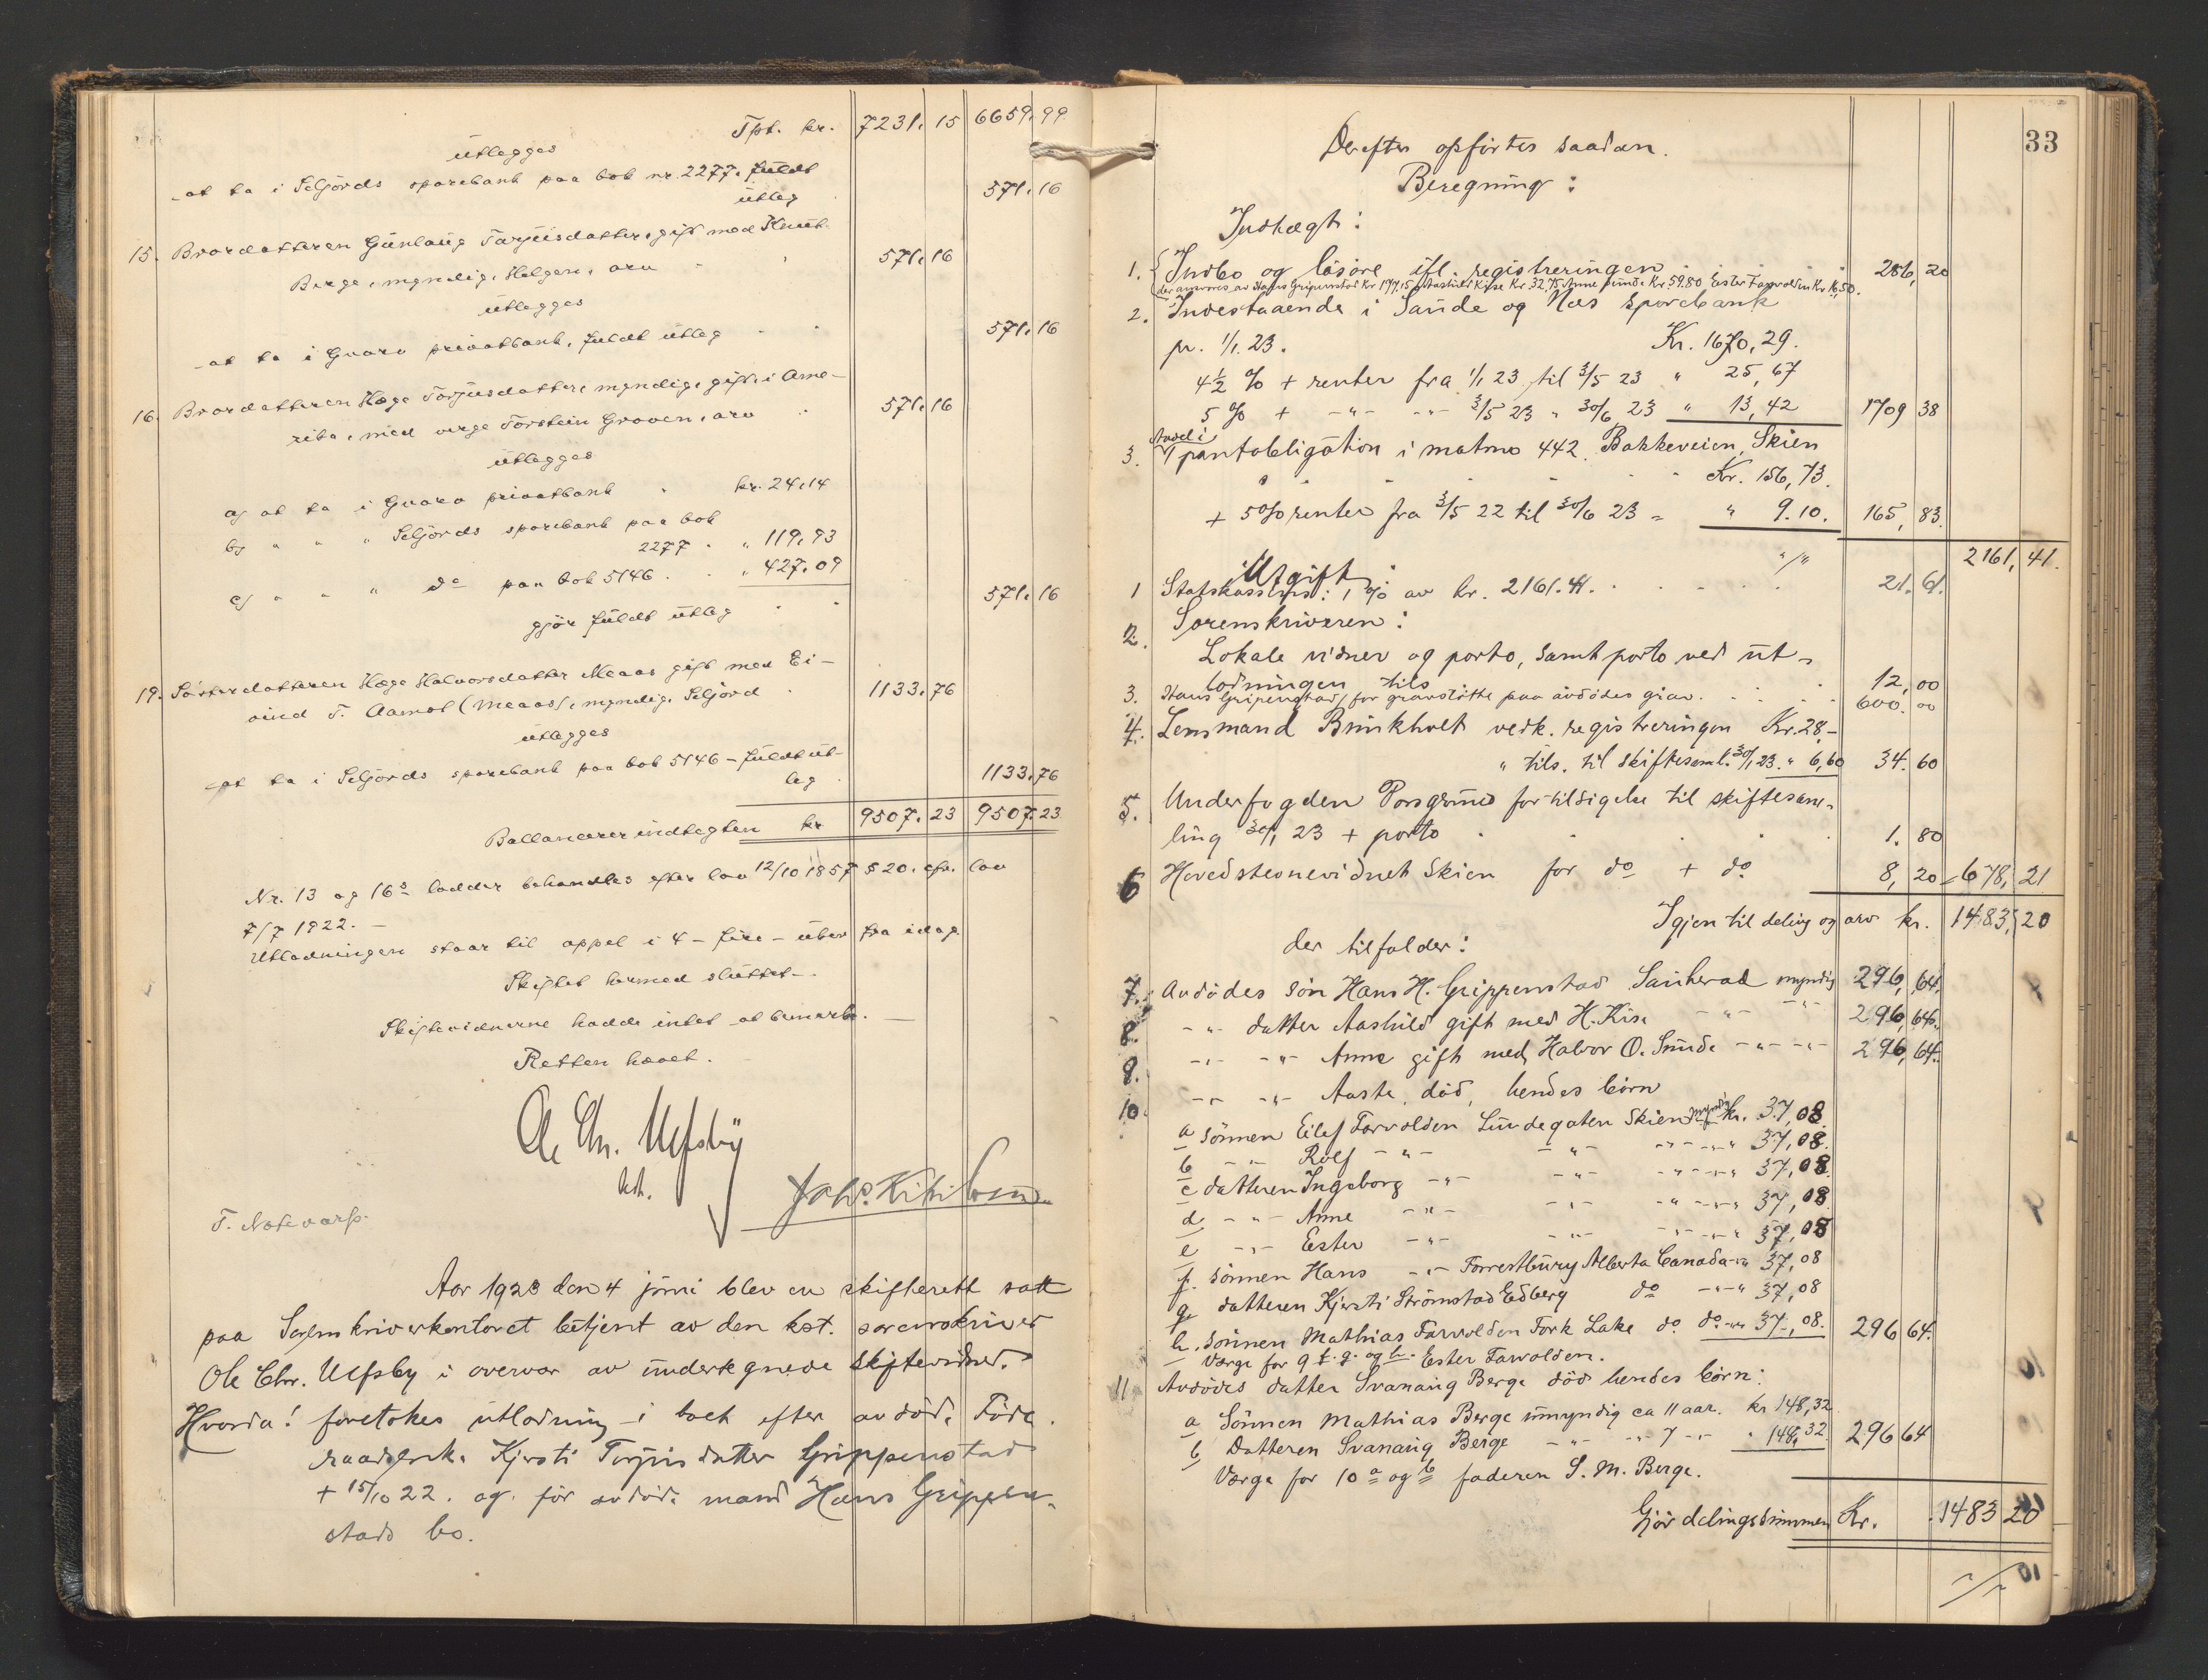 Tpt. kr. 7231. 15 6659. 99
utlegges
- at ta i Seljords sparebank paa bok nr. 2277. fuldt
utleg 571. 16
15. Brordatteren Gunlaug Tarjeisdatter, gift med Knut
Berge, myndig, Helgen, arv 571. 16
utlegges
- at ta i Gvarv privatbank, fuldt utleg 571. 16
16. Brordatteren Hæge Torjusdatter, myndig, gift i Ame-
rika, med verge Torstein Groven, arv 571. 16
utlegges
a) at ta i Gvarv privatbank kr. 24,14
b) " " " Seljords sparebank paa bok
2277 " 119,93
c) " " " do paa bok 5146 . " 427.09
gjør fuldt utleg 571. 16
19. Søsterdatteren Hæge Halvorsdatter Meaas gift med Ei-
vind T. Aamot (Meaas), myndig, Seljord 1133. 76
utlegges
- at ta i Seljords sparebank paa bok 5146 - fuldt ut-
leg 1133. 76
Ballancerer indtegten kr 9507. 23 9507. 23
Nr. 13 og 16s lodder behandles efter lov 12/10 1857 § 20. cfr. lov
7/7 1922. -
Utlodningen staar til appel i 4 - fire - uker fra idag.
Skiftet hermed sluttet -.
Skiftevidnerne hadde intet at bemerke. -
Retten hævet.
O. Chr. Ulfsby
kst.
T. Notevarp.
Aar 1923 den 4 juni blev en skifterett satt
paa Sorenskriverkontoret betjent av den kst. sorenskriver
Ole Chr. Ulfsby i overvær av undertegnede skiftevidner.
Hvorda: foretokes utlodning i boet efter avdøde Føde-
raadsenke Kjersti Torjusdatter Grippenstad
+ 15/10 22. og før avdøde mand Hans Grippen-
stads bo.
33
Derefter opførtes saadan.
Beregning:
Indtægt:
1. Indbo og løsøre ifl. registreringen 286, 20
der ansvares av Hans Gripenstad Kr 177.15, Aashild Kise Kr. 32,75 Anne Sunde Kr. 59.80 Ester Farvolden Kr. 16,50.
2. Indestaaende i Saude og Nes sparebank
pr. 1/1. 23. Kr. 1670,29.
4½ % + renter fra 1/1 23 til 3/5 23 " 25,67
5 % + -"- -"- 3/5 23 " 30/6 23 " 13,42 1709 38
3. Andel i pantobligation i matrno 442. Bakkeveien, Skien
Kr. 156,73.
+ 5% renter fra 3/5 22 til 30/6 23 = " 9.10. 165, 83.
"/" 2161, 41.
Utgift:
1 Statskassens: 1 % av kr. 2161.41. 21. 61.
2. Sorenskriveren:
Lokale vidner og porto, samt porto ved ut-
lodningen tils 12, 00
3. Hans Gripenstad, for gravstøtte paa avdødes grav. 600. 00
4. Lensmand Brinkholt verk. registreringen Kr. 28,-
" tils. til skiftesaml. 30/1 23. " 6,60 34. 60
5. Underfogden Porsgrund for tilsigelse til skiftesam-
ling 30/1 23 + porto 1. 80
6 Hovedstevnevidnet Skien for do + do 8, 20 - 678, 21
Igjen til deling og arv kr. 1483, 20
der tilfalder:
7. Avdødes søn Hans H. Grippenstad Sauherad myndig 296, 64.
8. -"- datter Aashild gift med H. Kise -"- -"- 296, 64.
9. -"- -"- Anne gift med Halvor O. Sunde -"- -"- 296, 64.
10. -"- -"- Aaste, død, hendes børn
a sønnen Eilef Farvolden Lundegaten Skien myndig Kr. 37,08.
b -"- Rolf -"- -"- -"- -"- " 37,08.
c datteren Ingeborg -"- -"- -"- -"- " 37,08
d -"- Anne -"- -"- -"- -"- " 37,08
e -"- Ester -"- -"- -"- -"- " 37,08
f. sønnen Hans -"- Forrestbury Alberta Canada -"- 37,08
g. datteren Kjersti Strømstad Edberg do -"- " 37,08
h. sønnen Mathias Farvolden Fork Lake do. do. -"- 37,08. 296 64.
Værge for 9 f. g. og h. Ester Farvolden.
11 Avdødes datter Svanaug Berge død hendes børn:
a Sønnen Mathias Berge umyndig ca 11 aar. kr 148,32
b Datteren Svanaug Berge -"- -"- 7 -"- " 148,32. 296 64
Værge for 10 a og b faderen S. M. Berge.
Gjør delingssummen Kr. 1483 20